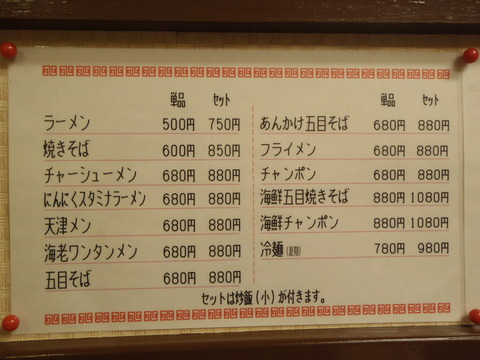 単品 セット
ラーメン 500円 750円
焼きそば 600円 850円
チャーシューメン 680円 880円
にんにくスタミナラーメン 680円 880円
天津メン 680円 880円
海老ワンタンメン 680円 880円
五目そば 680円 880円
単品 セット
あんかけ五目そば 680円 880円
フライメン 680円 880円
チャンポン 680円 880円
海鮮五目焼きそば 880円 1080円
海鮮チャンポン 880円 1080円
冷麺 780円 980円
セットは炒飯(小)が付きます。